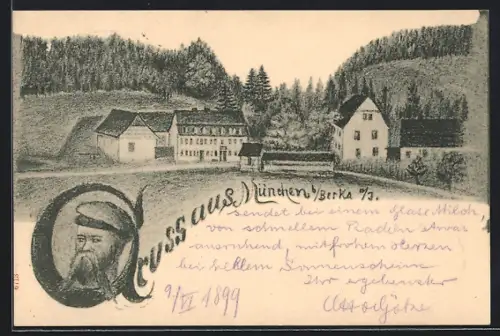 Gruss aus München b/Berka a/J.
sendet bei einem Glase Milch,
von schnellem Radeln etwas
ausruhend, mit frohem Herzen
bei hellem Sonnenschein
Ihr ergebenster
Otto Götze
9/VI 1899